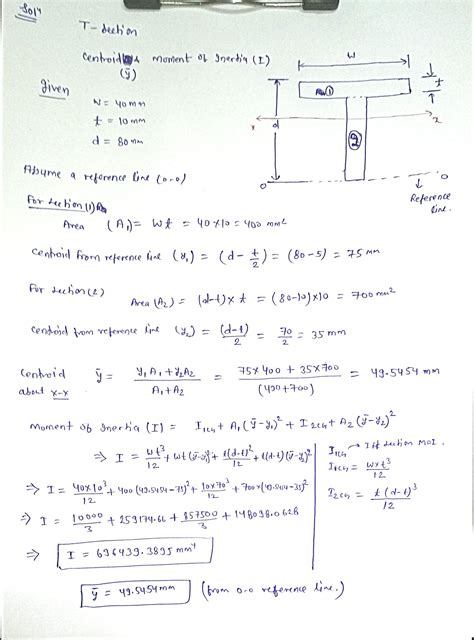 Soln
T-Section
Centroid & moment of Inertia (I)
(ȳ)
given
W = 40mm
t = 10mm
d = 80mm
w
t
d
①
②
x
x
o
o
Reference
line.
Assume a reference line (o-o)
For section (1)
Area (A₁) = Wt = 40×10 = 400 mm²
Centroid from reference line (y₁) = (d - t/2) = (80-5) = 75mm
For section (2)
Area (A₂) = (d-t)×t = (80-10)×10 = 700mm²
Centroid from reference line (y₂) = (d-t)/2 = 70/2 = 35mm
Centroid about x-x ȳ = (y₁A₁ + y₂A₂)/(A₁+A₂) = (75×400 + 35×700)/(400+700) = 49.5454 mm
moment of Inertia (I) = I₁CG + A₁(ȳ-y₁)² + I₂CG + A₂(ȳ-y₂)²
⇒ I = wt³/12 + wt(ȳ-y₁)² + t(d-t)³/12 + t(d-t)(ȳ-y₂)²
⇒ I = 40×10³/12 + 400(49.5454-75)² + 10×70³/12 + 700×(49.5454-35)²
⇒ I = 10000/3 + 259174.66 + 857500/3 + 148098.0628
⇒ I = 696439.3895 mm⁴
ȳ = 49.5454mm (from o-o reference line.)
I₁CG → I of section MOI.
I₁CG = w×t³/12
I₂CG = t(d-t)³/12